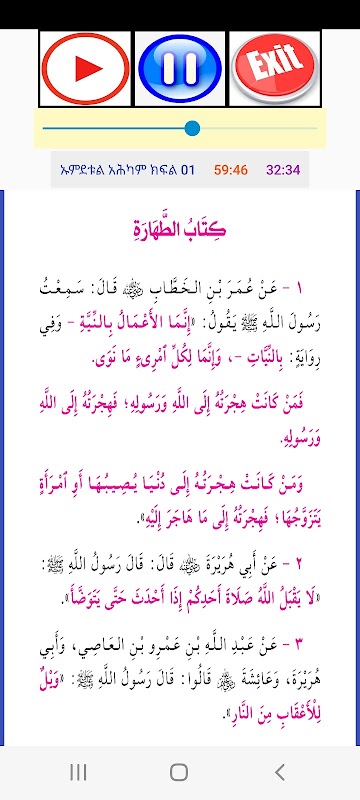 Exit
ኡምደቱል አሕካም ክፍል 01 59:46 32:34
كِتَابُ الطَّهَارَةِ
١ - عَنْ عُمَرَ بْنِ الخَطَّابِ ﵁ قَالَ: سَمِعْتُ
رَسُولَ اللَّهِ ﷺ يَقُولُ: «إِنَّمَا الأَعْمَالُ بِالنِّيَّةِ - وَفِي
رِوَايَةٍ: بِالنِّيَّاتِ -، وَإِنَّمَا لِكُلِّ ٱمْرِئٍ مَا نَوَى.
فَمَنْ كَانَتْ هِجْرَتُهُ إِلَى اللَّهِ وَرَسُولِهِ؛ فَهِجْرَتُهُ إِلَى اللَّهِ
وَرَسُولِهِ.
وَمَنْ كَانَتْ هِجْرَتُهُ إِلَى دُنْيَا يُصِيبُهَا أَوِ ٱمْرَأَةٍ
يَتَزَوَّجُهَا؛ فَهِجْرَتُهُ إِلَى مَا هَاجَرَ إِلَيْهِ».
٢ - عَنْ أَبِي هُرَيْرَةَ ﵁ قَالَ: قَالَ رَسُولُ اللَّهِ ﷺ:
«لَا يَقْبَلُ اللَّهُ صَلَاةَ أَحَدِكُمْ إِذَا أَحْدَثَ حَتَّى يَتَوَضَّأَ».
٣ - عَنْ عَبْدِ اللَّهِ بْنِ عَمْرِو بْنِ العَاصِي، وَأَبِي
هُرَيْرَةَ، وَعَائِشَةَ ﵃ قَالُوا: قَالَ رَسُولُ اللَّهِ ﷺ: «وَيْلٌ
لِلْأَعْقَابِ مِنَ النَّارِ».